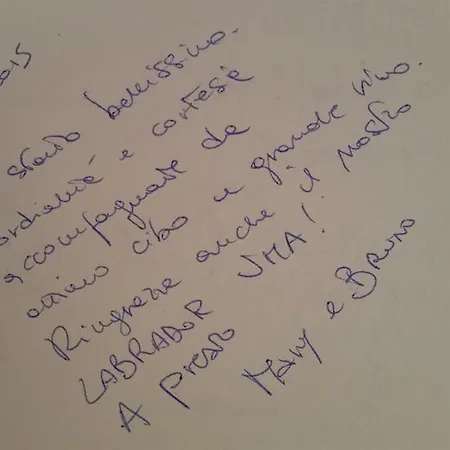 2015
stato bellissimo.
cordialità e cortesia
accompagnate da
ottimo cibo e grande vino.
Ringrazia anche il nostro
LABRADOR UMA!
A presto
Mary e Bruno